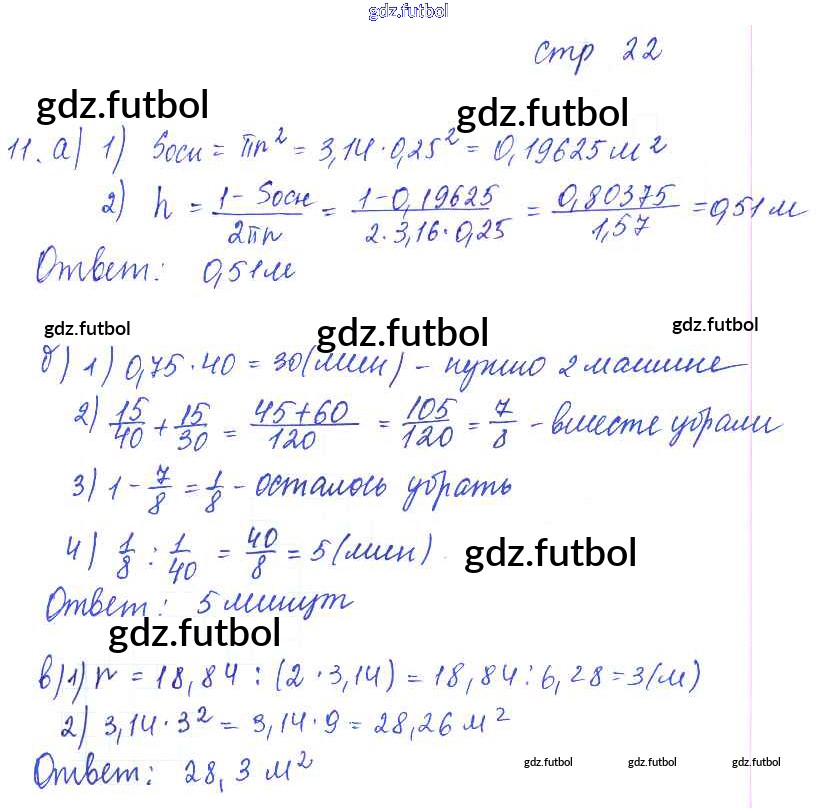 gdz.futbol
стр 22
gdz.futbol gdz.futbol
11. а) 1) Sосн = πr² = 3,14 · 0,25² = 0,19625 м²
2) h = (1 - Sосн)/(2πr) = (1 - 0,19625)/(2 · 3,16 · 0,25) = 0,80375/1,57 = 0,51 м
Ответ: 0,51 м
gdz.futbol gdz.futbol gdz.futbol
б) 1) 0,75 · 40 = 30 (мин) - нужно 2 машине
2) 15/40 + 15/30 = (45+60)/120 = 105/120 = 7/8 - вместе убрали
3) 1 - 7/8 = 1/8 - осталось убрать
4) 1/8 : 1/40 = 40/8 = 5 (мин) gdz.futbol
Ответ: 5 минут
gdz.futbol
в) 1) r = 18,84 : (2 · 3,14) = 18,84 : 6,28 = 3 (м)
2) 3,14 · 3² = 3,14 · 9 = 28,26 м²
Ответ: 28,3 м²
gdz.futbol gdz.futbol gdz.futbol